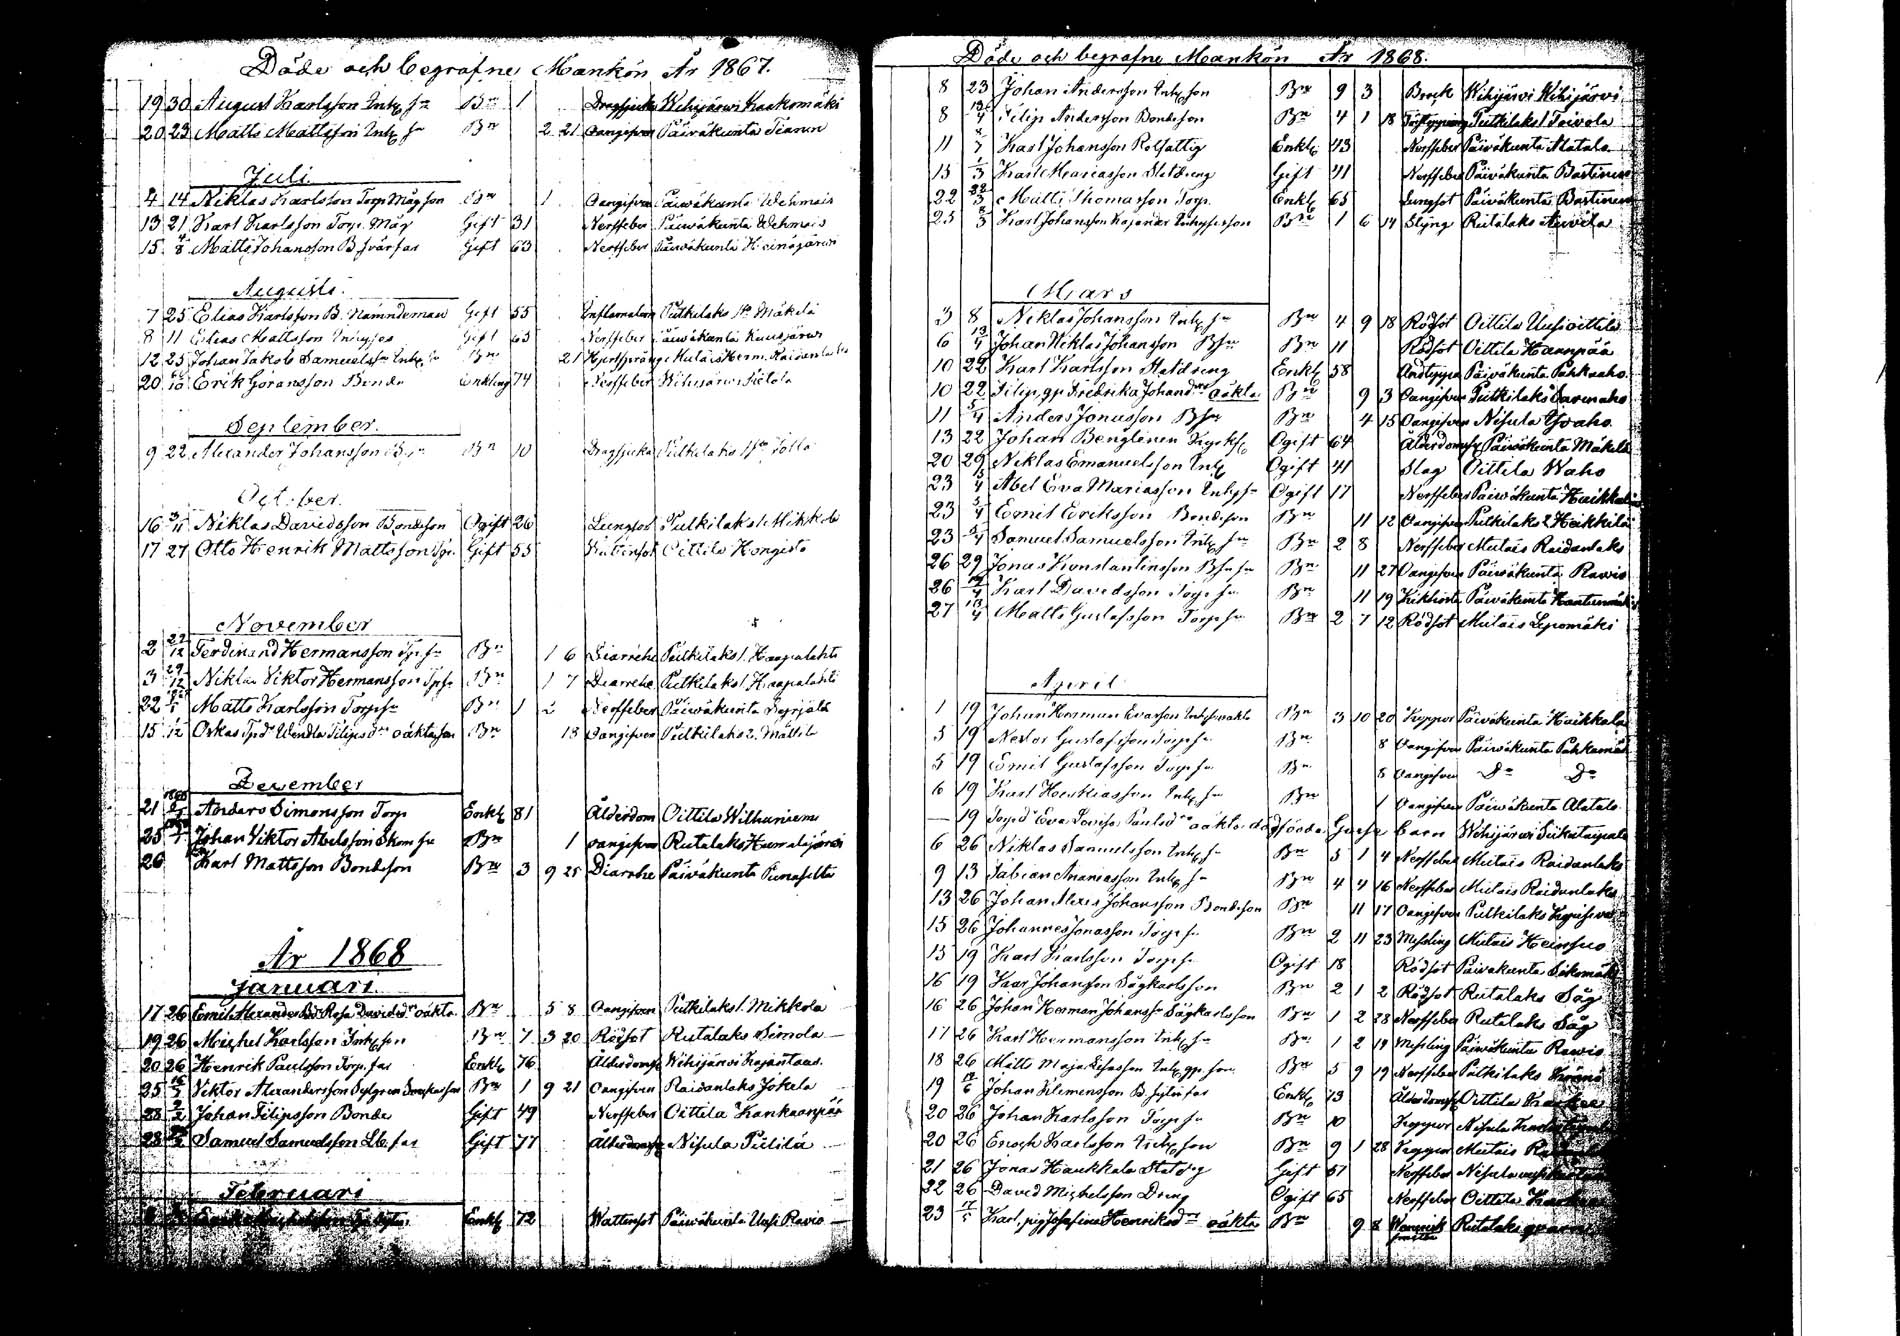 Döde och begrafne Mankön År 1867.
19 30 August Karlsson Inh. sn Bn 1 Dragsjuka Wihijärvi Kaakomäki
20 23 Matts Mattsson Inh. sn Bn 2 21 oangifven Päiväkunta
Juli
4 14 Niklas Karlsson Torp. Måg son Bn 1 Oangifven Päiväkunta Wehmais
13 21 Karl Karlsson Torp. Måg Gift 31 Nerffeber Päiväkunta Wehmais
15 4/8 Matts Johansson B. Svärfar Gift 63 Nerffeber Päiväkunta Heinäjärvi
Augusti.
7 25 Elias Karlsson B. Nämndeman Gift 55 Inflamation Putkilaks Mäkelä
8 11 Elias Mattsson Inhyses Gift 63 Nerffeber Päiväkunta Kuusjärvi
12 25 Johan Jakob Samuelsson Inh. sn Bn 21 Hjertsprång Mutais Herm. Raidanlaks
20 Erik Göransson Bonde Enkling 74 Nerffeber Wihijärvi Pietola
September.
9 22 Alexander Johansson Bn 10 Dragsjuka Putkilaks
October.
16 3/11 Niklas Davidsson Bondeson Ogift 26 Lungsot Putkilaks 1 Mikkola
17 27 Otto Henrik Mattsson Tp. Gift 55 Oittila Hongisto
November
2 22/12 Ferdinand Hermansson Tp. sn Bn 1 6 Diarrehe Putkilaks 1. Haapalahti
3 29/12 Niklas Viktor Hermansson Tp. sn Bn 1 7 Diarrehe Putkilaks 1 Haapalahti
22 Matts Karlsson Torp. sn Bn 1 2 Nerffeber Päiväkunta
15 1/12 Oskar Tpd. Wendla Filipsdr oäkta son Bn 18 Oangifven Putkilaks 2. Mattila
December
21 Anders Simonsson Torp. Enkl. 81 Ålderdom Oittila Wilhuniemi
25 Johan Viktor Abelsson Skom. sn Bn 1 oangifven Rutalaks Hauralijärvi
26 Karl Mattsson Bondson Bn 3 9 25 Diarrhe Päiväkunta
År 1868
Januari
17 26 Emil Alexander Rosa Davidsdr oäkta Bn 5 8 Oangifven Putkilaks 1. Mikkola
19 26 Michel Karlsson Inh. son Bn 7 3 20 Rödsot Rutalaks Simola
20 26 Henrik Paulsson Torp. far Enkl. 76 Ålderdomsf. Wihijärvi
25 Viktor Alexandersson Bn 1 9 21 Oangifven Raidanlaks Jokela
28 9/2 Johan Filipsson Bonde Gift 49 Nerffeber Oittila Kankaanpää
28 Samuel Samuelsson Lb. far Gift 77 Ålderdomsf. Nisula Pietilä
Februari
Enkl. 72 Wattensot Päiväkunta Uusi Ravio
Döde och begrafne Mankön År 1868.
8 23 Johan Andersson Inh. son Bn 9 3 Brock Wihijärvi Wihijärvi
8 13/4 Filip Andersson Bondeson Bn 4 1 18 Putkilaks 1 Toivola
11 8/3 Karl Johansson Rotfattig Enkl. 43 Nerffeber Päiväkunta Alatalo
15 1/3 Karl Mariasson Statdreng Gift 41 Nerffeber Päiväkunta Bastinen
22 22/3 Matti Thomasson Torp. Enkl. 65 Lungsot Päiväkunta Bastinen
25 8/3 Karl Johansson Kajander Inhysesson Bn 1 6 14 Styng Rutalaks Anvila
Mars
3 8 Niklas Johansson Inh. sn Bn 4 9 18 Rödsot Oittila Uusioittila
6 13/4 Johan Niklas Johansson B. sn Bn 11 Rödsot Oittila Haanpää
10 22 Karl Karlsson Statdreng Enkl. 58 Andtäppa Päiväkunta Pakkaaho
10 22 Filip, gp. Fredrika Johansdr oäkta Bn 9 3 Oangifven Putkilaks
11 5/4 Anders Jonasson B. sn Bn 4 15 Oangifven Nisula Ysvaho
13 22 Johan Bengtenen Kyrkf. Ogift 64 Ålderdomsf. Päiväkunta Mäkelä
20 29 Niklas Emanuelsson Inh. Ogift 41 Slag Oittila Waho
23 5/4 Abel Eva Mariasson Inh. sn Ogift 17 Nerffeber Päiväkunta Haikkala
23 5/4 Emil Eriksson Bondeson Bn 11 12 Oangifven Putkilaks 2 Heikkilä
23 5/4 Samuel Samuelsson Inh. sn Bn 2 8 Nerffeber Mutais Raidanlaks
26 29 Jonas Konstantinsson B. sn sn Bn 11 27 Oangifven Päiväkunta Ravio
26 Karl Davidsson Torp. sn Bn 11 19 Kikhosta Päiväkunta Hautanmäki
27 13/4 Matts Gustafsson Torp. sn Bn 2 7 12 Rödsot Mutais Lepomäki
April
1 19 Johan Herman Evasson Inh. son oäkta Bn 3 10 20 Koppor Päiväkunta Haikkala
5 19 Nestor Gustafsson Torp. sn Bn 8 Oangifven Päiväkunta
5 19 Emil Gustafsson Torp. sn Bn 8 Oangifven Do Do
6 19 Karl Heikiasson Inh. sn Bn 1 Oangifven Päiväkunta Alatalo
— 19 Torpd. Eva Lovisa Paulsdr oäkta dödfödda Gosse barn Wihijärvi Siikataipale
6 26 Niklas Samuelsson Inh. sn Bn 5 1 4 Nerffeber Mutais Raidanlaks
9 13 Fabian Ananiasson Inh. sn Bn 4 4 16 Nerffeber Mutais Raidanlaks
13 26 Johan Alexis Johansson Bondeson Bn 11 17 Oangifven Putkilaks
15 26 Johannes Jonasson Torp. sn Bn 2 11 23 Messling Mutais Heinsuo
15 19 Karl Karlsson Torp. sn Ogift 18 Rödsot Päiväkunta
16 19 Isaac Johansson Sågkarlsson Bn 2 1 2 Rödsot Rutalaks Såg
16 26 Johan Herman Johanss. Sågkarlsson Bn 1 2 28 Nerffeber Rutalaks Såg
17 26 Karl Hermansson Inh. sn Bn 1 2 19 Messling Päiväkunta Ravio
18 26 Matts Maja Lisasson Inh. gp. son Bn 5 9 19 Nerffeber Putkilaks
19 Johan Klemensson B. Enkl. 73 Ålderdomsf. Oittila
20 26 Johan Karlsson Torp. sn Bn 10 Koppor Nisula
20 26 Enoch Karlsson Inh. son Bn 9 1 28 Koppor Mutais
21 26 Jonas Haukkala Statdrg Gift 57 Nerffeber Nisula
22 26 David Michelsson Dreng Ogift 65 Nerffeber Oittila
23 17/5 Karl, pig. Josefina Henriksdr oäkta Bn 9 8 Rutalaks